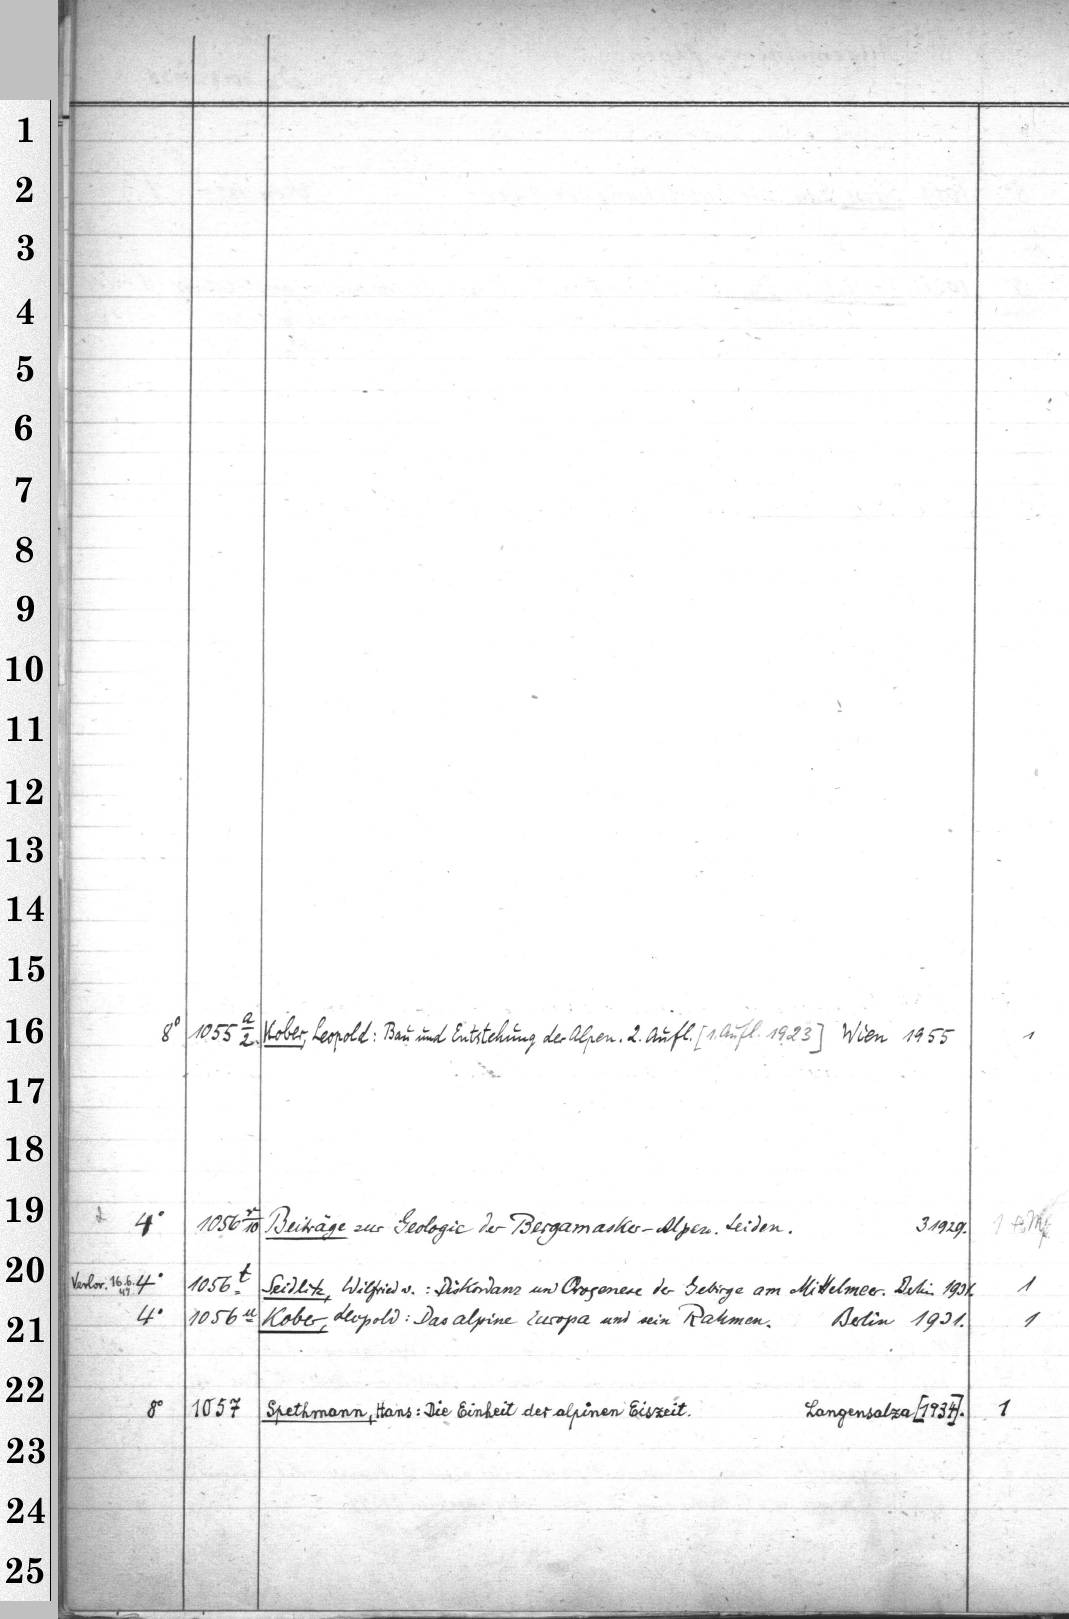 1
2
3
4
5
6
7
8
9
10
11
12
13
14
15
16 8° 1055 a/2. Kober, Leopold: Bau und Entstehung der Alpen. 2. Aufl. [1. Aufl. 1923] Wien 1955 1
17
18
19 4° 1056 r/10 Beiträge zur Geologie der Bergamasker-Alpen. Leiden. 3 1929. 1
20 Verlor. 16.6.47 4° 1056 t Seidlitz, Wilfried v.: Diskordanz und Orogenese der Gebirge am Mittelmeer. Berlin 1931. 1
21 4° 1056 u Kober, Leopold: Das alpine Europa und sein Rahmen. Berlin 1931. 1
22 8° 1057 Spethmann, Hans: Die Einheit der alpinen Eiszeit. Langensalza [1934]. 1
23
24
25